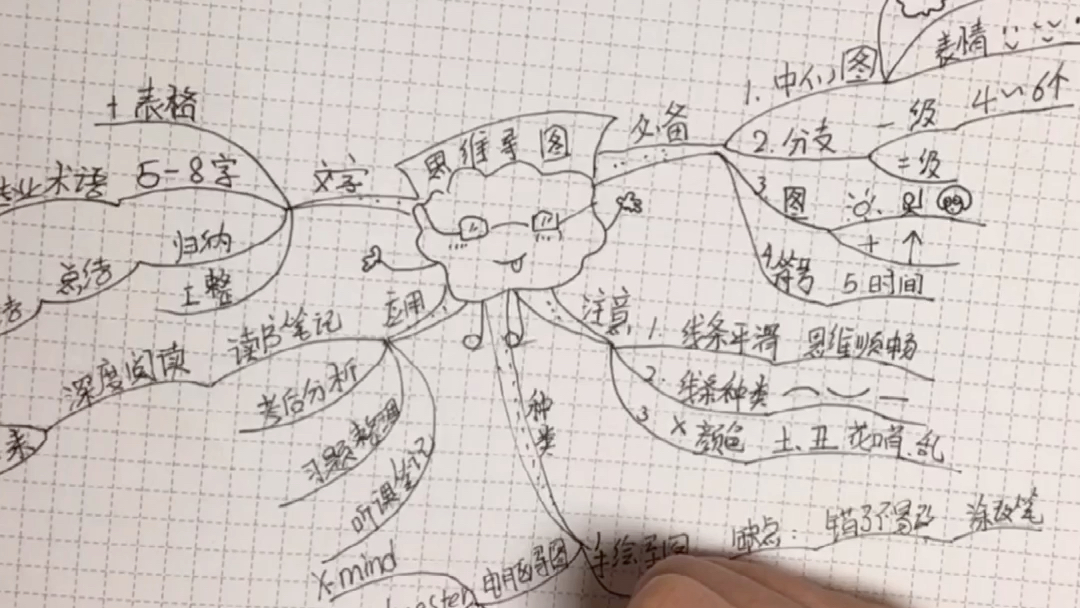 思维导图
必备
1. 中心图
表情
2. 分支
一级 4~6个
二级
3 图
+ ↑
4 符号 5 时间
注意
1. 线条平滑 思维顺畅
2. 线条种类
3 × 颜色 土、丑 花哨、乱
种类
手绘导图
缺点: 错了不易改 涂改笔
电脑导图
X-mind
应用
读书笔记
深度阅读
考后分析
习题整理
听课笔记
文字
+ 表格
5-8字
术语
归纳
总结
工整